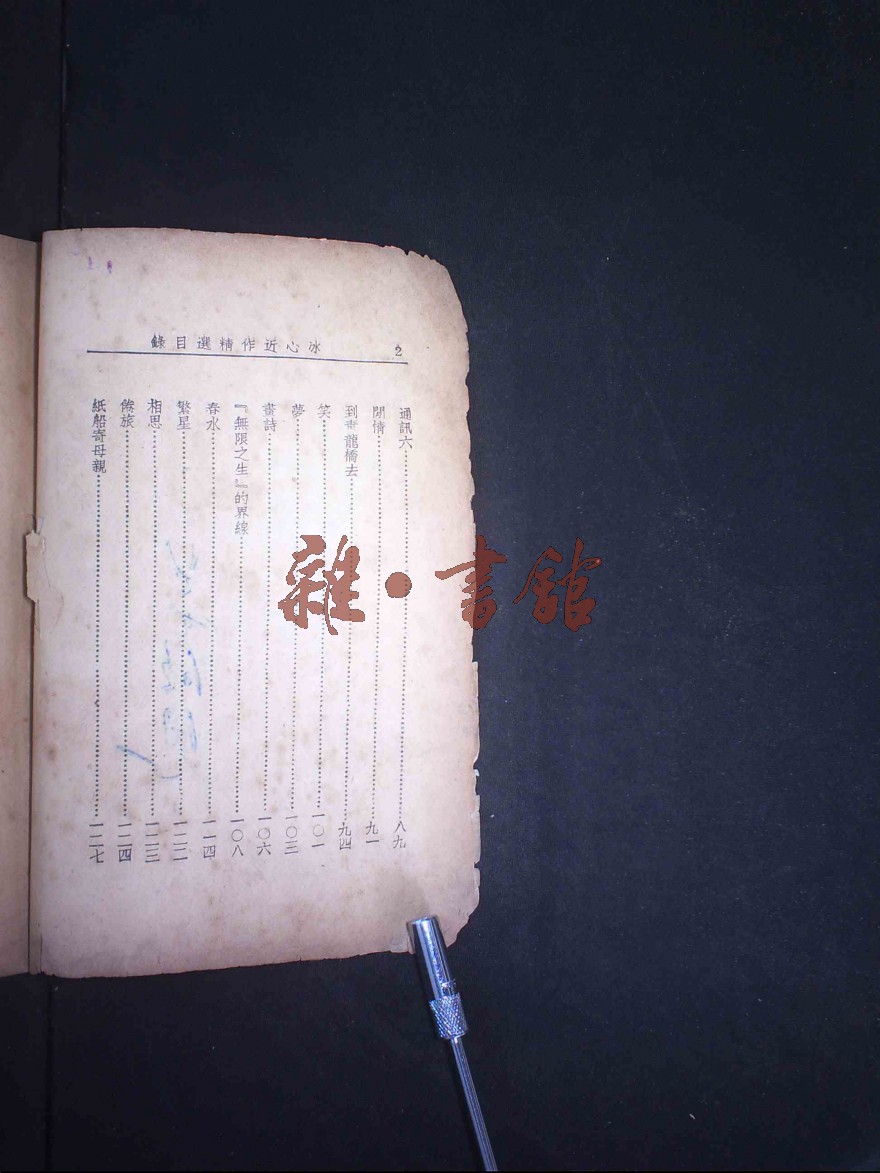 2 冰心近作精選目錄
通訊六……八九
閒情……九一
到青龍橋去……九四
笑……一〇一
夢……一〇三
畫詩……一〇六
『無限之生』的界線……一〇八
春水……一一四
繁星……一二二
相思……一二三
倦旅……一二四
紙船寄母親……一二七
雜·書館